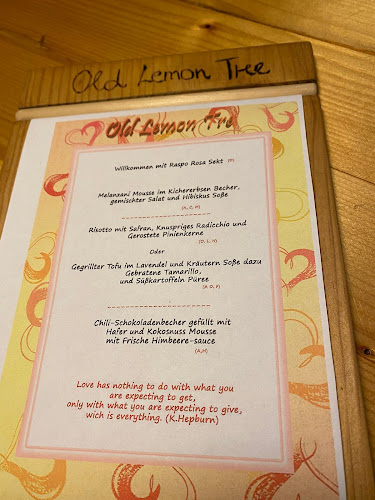 Old Lemon Tree
Old Lemon Tre
Willkommen mit Raspo Rosa Sekt
Melanzani Mousse im Kichererbsen Becher,
gemischter Salat und Hibiskus Soße
Risotto mit Safran, Knuspriges Radicchio und
Gerostete Pinienkerne
Oder
Gegrillter Tofu im Lavendel und Kräutern Soße dazu
Gebratene Tamarillo,
und Süßkartoffeln Püree
Chili-Schokoladenbecher gefüllt mit
Hafer und Kokosnuss Mousse
mit Frische Himbeere-sauce
(A,H)
Love has nothing to do with what you
are expecting to get,
only with what you are expecting to give,
wich is everything. (K.Hepburn)